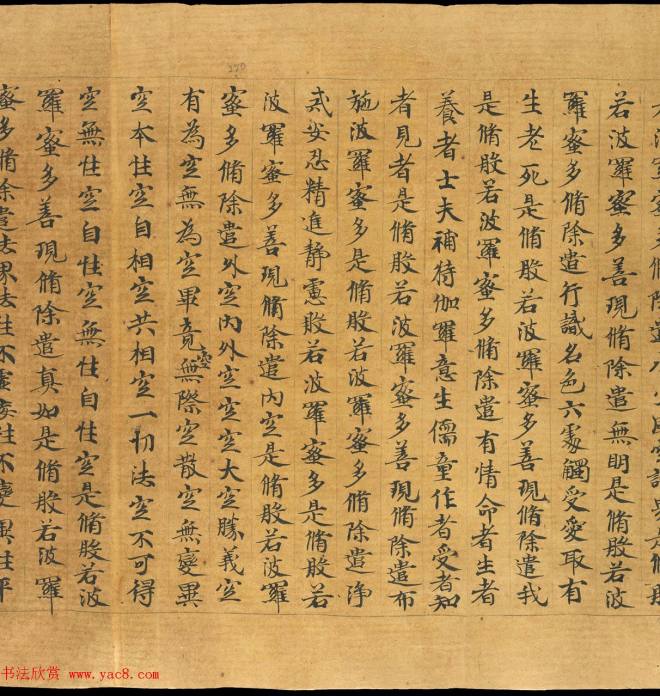 若波羅蜜多善現脩除遣無明是脩般若波
羅蜜多脩除遣行識名色六處觸受愛取有
生老死是脩般若波羅蜜多善現脩除遣我
是脩般若波羅蜜多脩除遣有情命者生者
養者士夫補特伽羅意生儒童作者受者知
者見者是脩般若波羅蜜多善現脩除遣布
施波羅蜜多是脩般若波羅蜜多脩除遣淨
戒安忍精進靜慮般若波羅蜜多是脩般若
波羅蜜多善現脩除遣內空是脩般若波羅
蜜多脩除遣外空內外空空空大空勝義空
有為空無為空畢竟空無際空散空無變異
空本性空自相空共相空一切法空不可得
空無性空自性空無性自性空是脩般若波
羅蜜多善現脩除遣真如是脩般若波羅
蜜多脩除遣法界法性不虛妄性不變異性平
书法欣赏 www.yac8.com